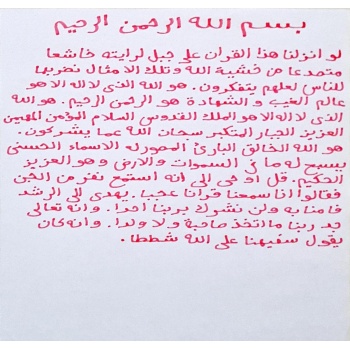 بسم الله الرحمن الرحيم
لو انزلنا هذا القران على جبل لرايته خاشعا
متصدعا من خشية الله وتلك الامثال نضربها
للناس لعلهم يتفكرون. هو الله الذى لا اله الا هو
عالم الغيب و الشهادة هو الرحمن الرحيم. هو الله
الذى لا اله الا هو الملك القدوس السلام المؤمن المهيمن
العزيز الجبار المتكبر سبحان الله عما يشركون.
هو الله الخالق البارئ المصور له الاسماء الحسنى
يسبح له ما فى السموات والارض وهو العزيز
الحكيم. قل أوحى الى انه استمع نفر من الجن
فقالوا انا سمعنا قرانا عجبا. يهدى الى الرشد
فامنا به ولن نشرك بربنا احدا. وانه تعالى
جد ربنا ما اتخذ صاحبة ولا ولدا. وانه كان
يقول سفيهنا على الله شططا.